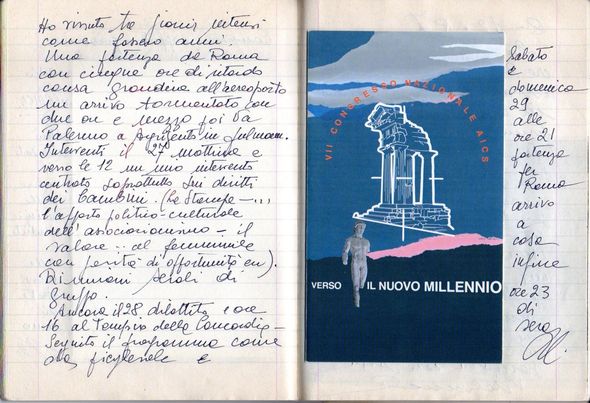 Ho vissuto tre giorni intensi
come fossero anni.
Una partenza da Roma
con cinque ore di ritardo
causa grandine all'aereoporto
un arrivo tormentato con
due ore e mezzo poi da
Palermo a Agrigento in pulmann.
Interventi il 27 mattina e
verso le 12 un mio intervento
centrato soprattutto sui diritti
dei bambini. (La Stampa - ...
l'apporto politico-culturale
dell'associazionismo - il
valore .. al femminile
con parità di opportunità ecc).
Riunioni serali di
gruppo.
Ancora il 28 dibattito e ore
16 al Tempio della Concordia -
Seguito il programma come
da e
VII CONGRESSO NAZIONALE AICS
VERSO IL NUOVO MILLENNIO
Sabato
e
domenica
29
alle
ore 21
partenza
per
Roma
arrivo
a
casa
infine
ore 23
di
sera